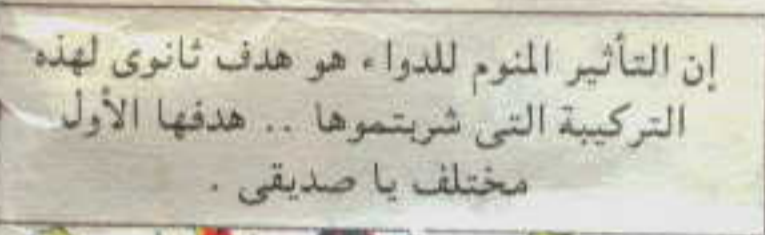 إن التأثير المنوم للدواء هو هدف ثانوى لهذه
التركيبة التى شربتموها .. هدفها الأول
مختلف يا صديقى .